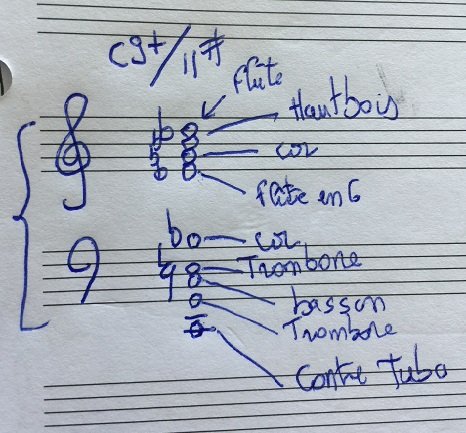 C9+/11#
flûte
Hautbois
cor
flûte en G
cor
Trombone
basson
Trombone
Contre Tuba